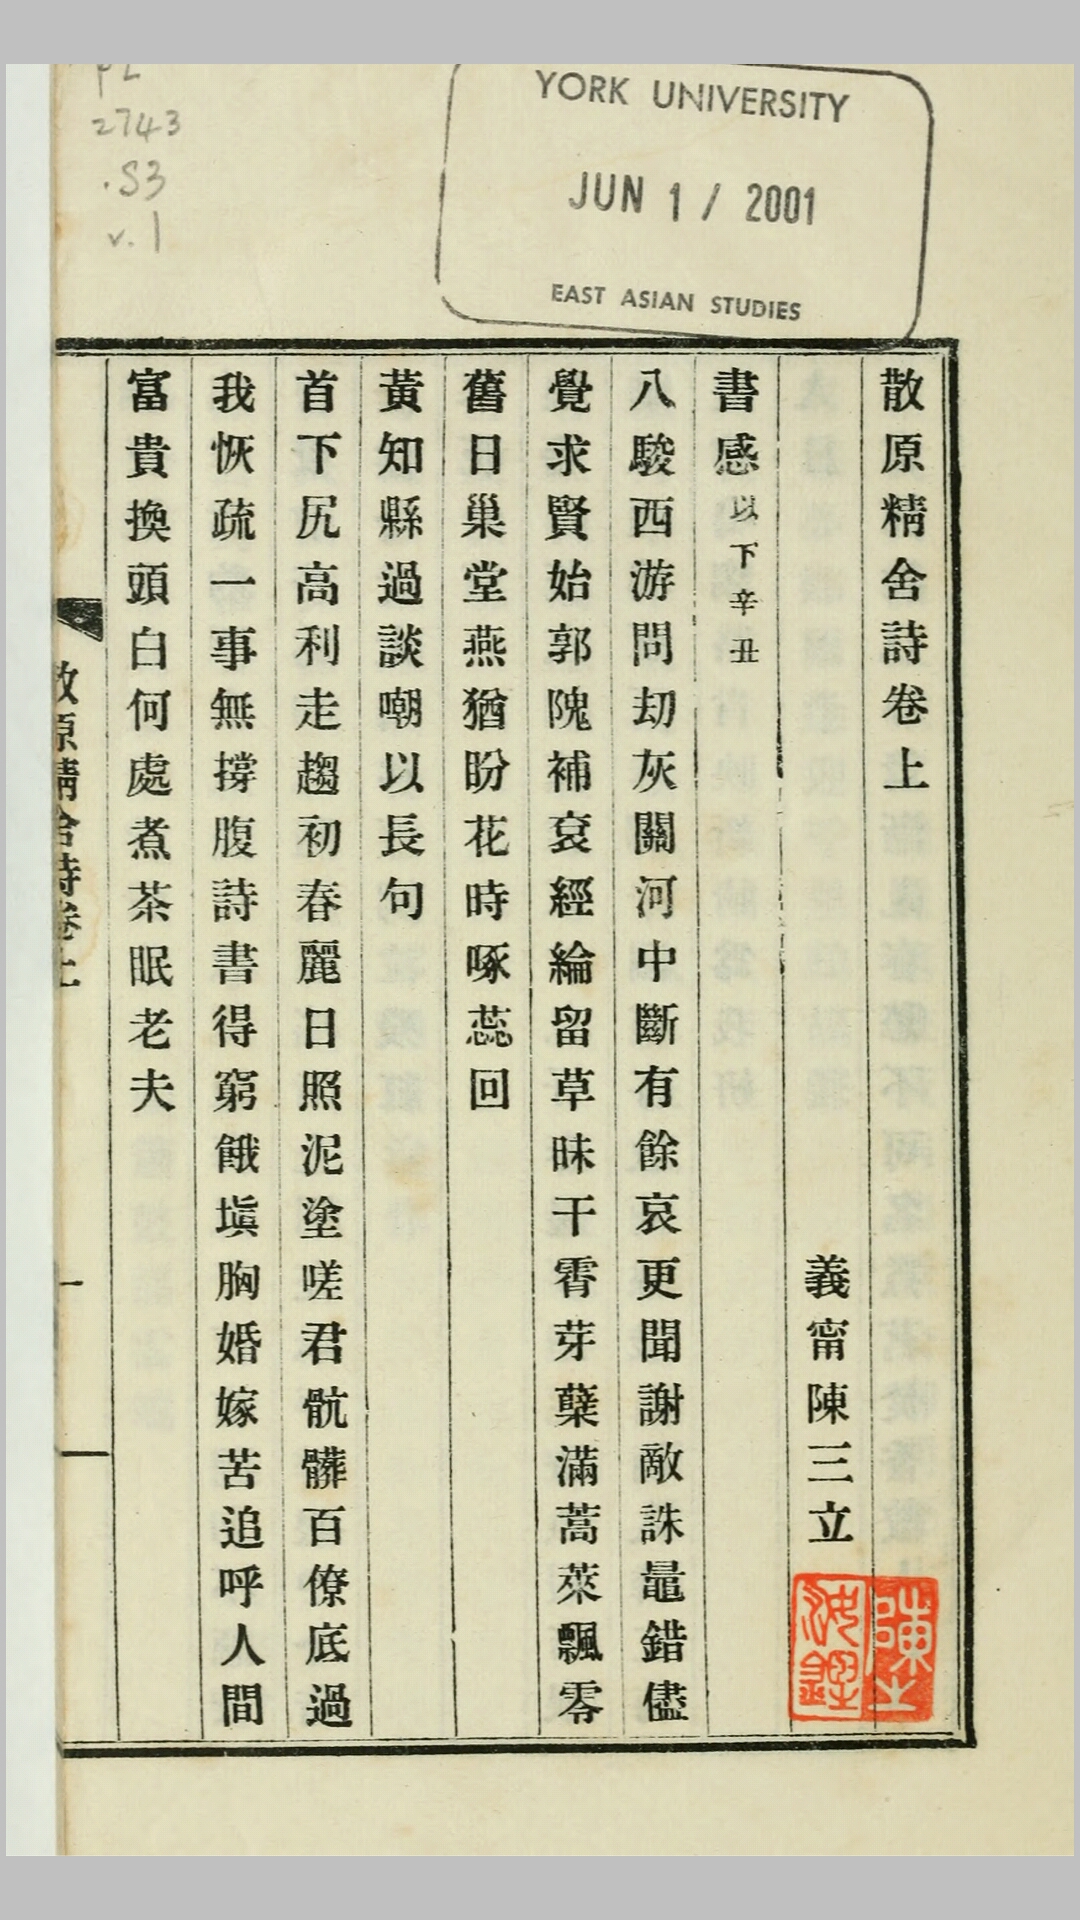 PL
2743
.S3
v.1
YORK UNIVERSITY
JUN 1 / 2001
EAST ASIAN STUDIES
散原精舍詩卷上
義甯陳三立
書感以下辛丑
八駿西游問劫灰關河中斷有餘哀更聞謝敵誅鼂錯儘
覺求賢始郭隗補袞經綸留草昧干霄芽蘖滿蒿萊飄零
舊日巢堂燕猶盼花時啄蕊回
黃知縣過談嘲以長句
首下尻高利走趨初春麗日照泥塗嗟君骯髒百僚底過
我恢疏一事無撐腹詩書得窮餓塡胸婚嫁苦追呼人間
富貴換頭白何處煮茶眠老夫
散原精舍詩卷上
一